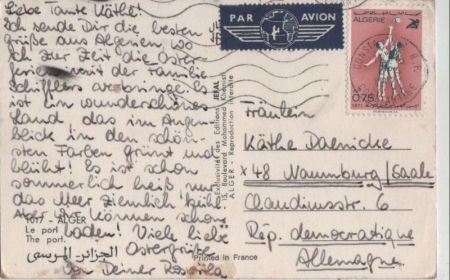 Liebe Tante Käthe!
Ich sende Dir die besten
Grüße aus Algerien, wo
ich zur Zeit die Oster-
ferien mit der Familie
Schüfflers verbringe. Es
ist ein wunderschönes
Land, das im Augen-
blick in den schön-
sten Farben grünt und
blüht! Es ist schon
sommerlich heiß, nur
das Meer ziemlich kühl
Aber wir können schon
baden! Viele liebe
Ostergrüße
von Deiner
1017 - ALGER
Le port
The port.
الجزائر. المرسى
Exclusivité des Editions JEFAL
15, Boulevard Mohammed Khemisti
ALGER - Reproduction Interdite
Printed in France
PAR AVION
ALGERIE
0,75
1971
CONST
R. P.
Fräulein
Käthe Daenicke
x48 Naumburg/Saale
Claudiusstr. 6
Rép. démocratique
Allemagne